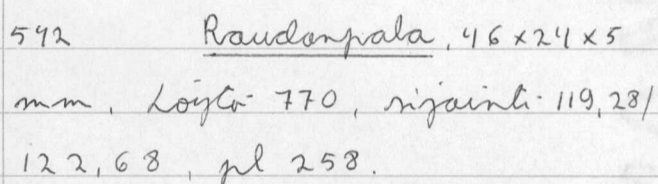 542 Raudanpala, 46 x 24 x 5
mm, Löytö 770, sijainti 119,28/
122,68, pl 258.